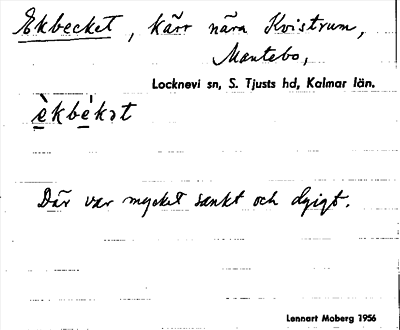 Ekbecket, kärr nära Kvistrum,
Mantebo,
Locknevi sn, S. Tjusts hd, Kalmar län.
è̱kbé̱kət
Där var mycket sankt och dyigt.
Lennart Moberg 1956